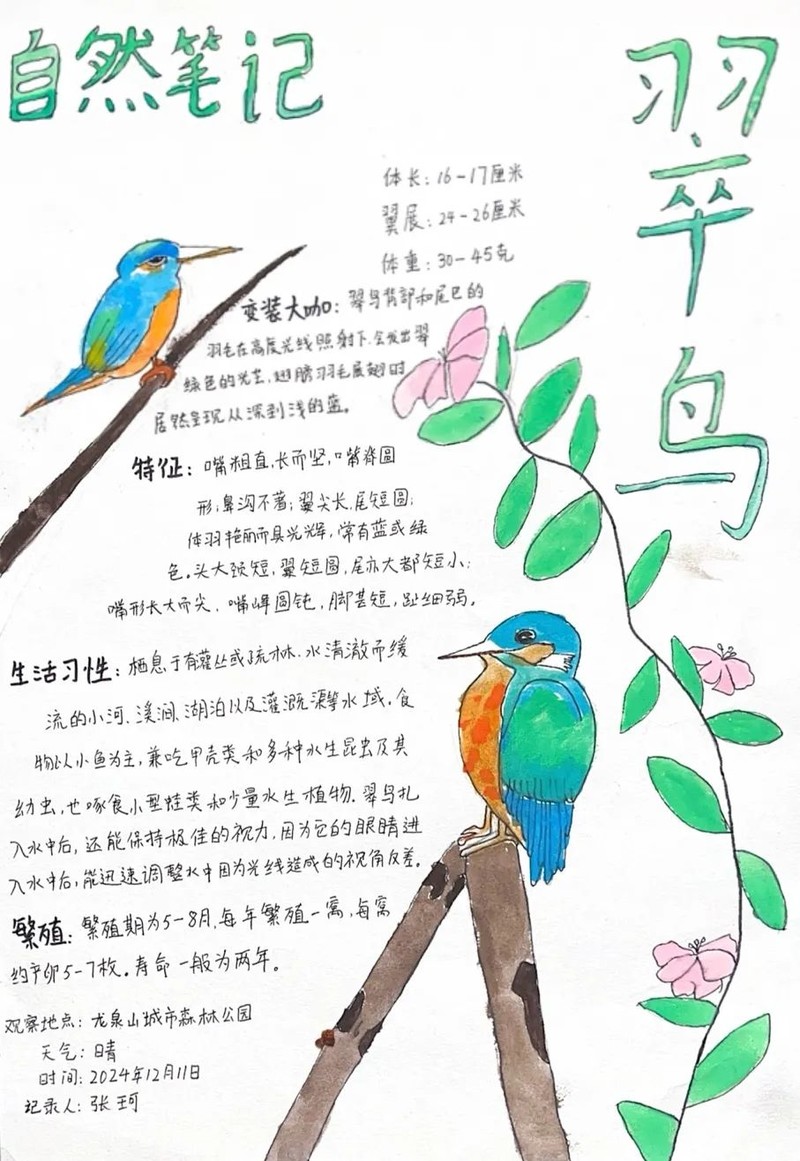 自然笔记
翠鸟
体长：16-17厘米
翼展：24-26厘米
体重：30-45克
变装大咖：翠鸟背部和尾巴的
羽毛在高度光线照射下会发出翠
绿色的光芒，翅膀羽毛展翅时
居然呈现从深到浅的蓝。
特征：嘴粗直，长而坚，嘴脊圆
形；鼻沟不著；翼尖长，尾短圆；
体羽艳丽而具光辉，常有蓝或绿
色。头大颈短，翼短圆，尾亦大都短小；
嘴形长大而尖，嘴峰圆钝，脚甚短，趾细弱。
生活习性：栖息于有灌丛或疏林、水清澈而缓
流的小河、溪涧、湖泊以及灌溉渠等水域。食
物以小鱼为主，兼吃甲壳类和多种水生昆虫及其
幼虫，也啄食小型蛙类和少量水生植物。翠鸟扎
入水中后，还能保持极佳的视力，因为它的眼睛进
入水中后，能迅速调整水中因为光线造成的视角反差。
繁殖：繁殖期为5-8月，每年繁殖一窝，每窝
约产卵5-7枚。寿命一般为两年。
观察地点：龙泉山城市森林公园
天气：晴
时间：2024年12月11日
记录人：张珂